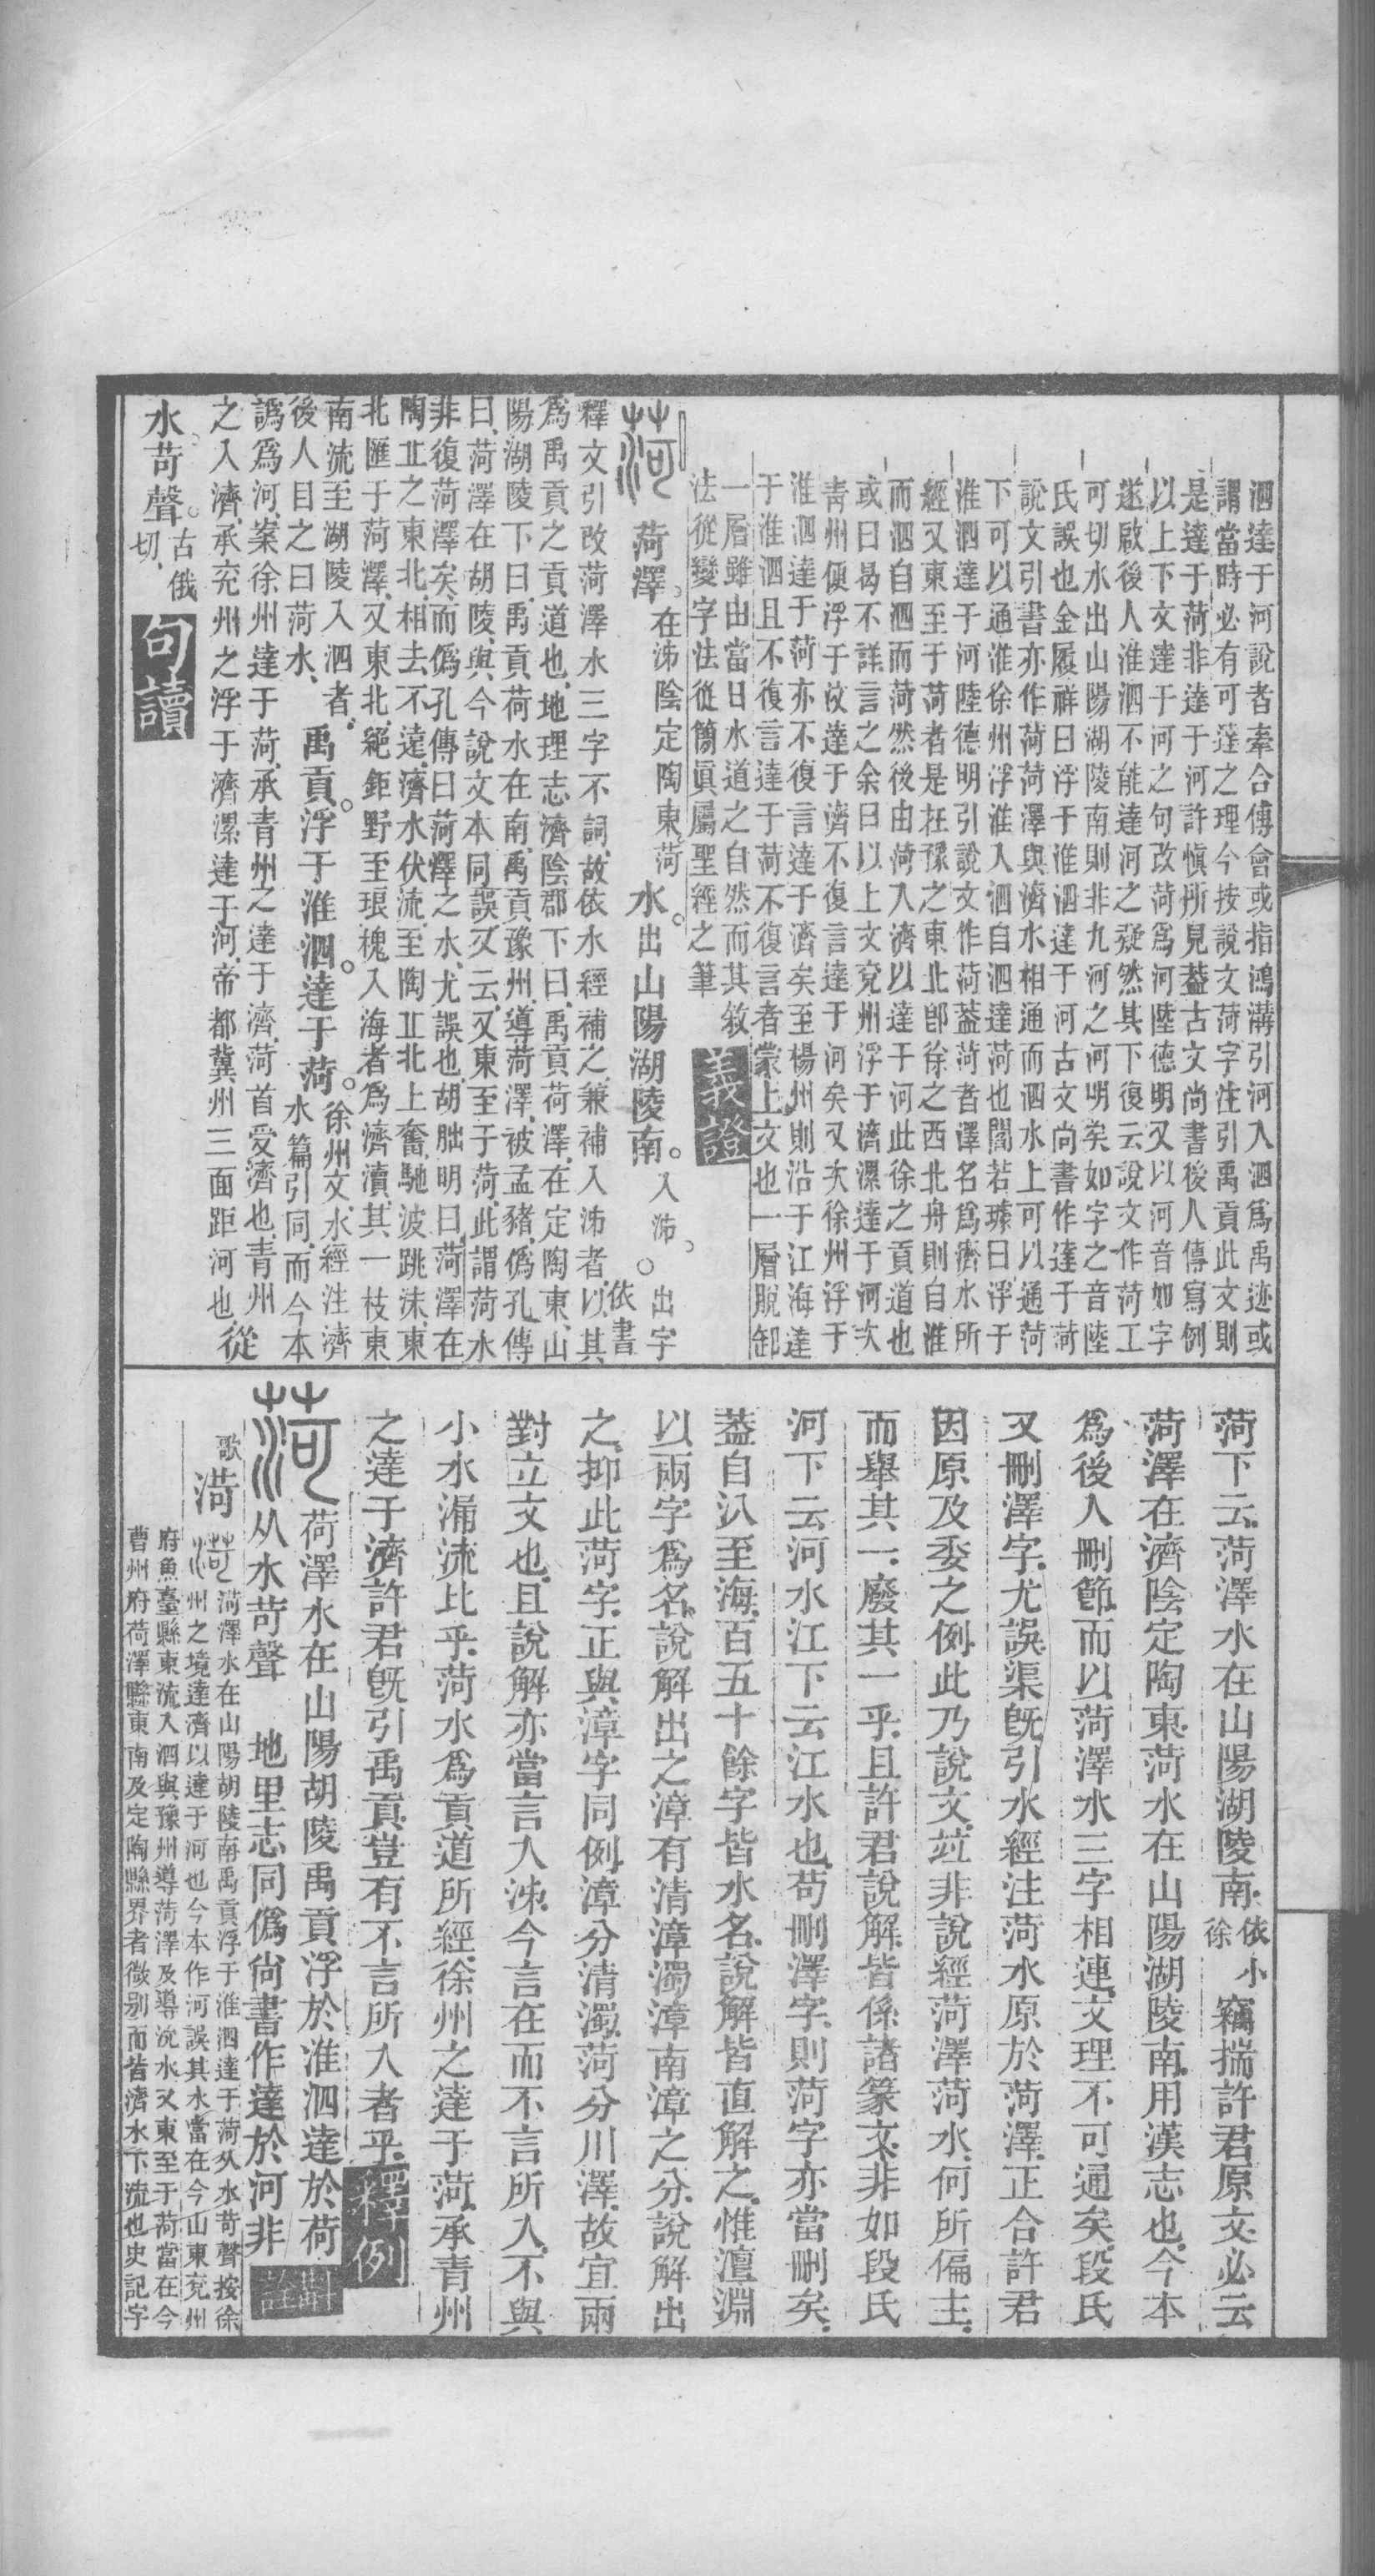 泗達于河說者牽合傅會或指鴻溝引河入泗爲禹迹或
謂當時必有可達之理今按說文菏字注引禹貢此文則
是達于菏非達于河許愼所見葢古文尚書後人傳寫例
以上下文達于河之句改菏爲河陸德明又以河音如字
遂啟後人淮泗不能達河之疑然其下復云說文作菏工
可切水出山陽湖陵南則非九河之河明矣如字之音陸
氏誤也金履祥曰浮于淮泗達于河古文尚書作達于菏
說文引書亦作菏菏澤與濟水相通而泗水上可以通菏
下可以通淮徐州浮淮入泗自泗達菏也閻若璩曰浮于
淮泗達于河陸德明引說文作菏葢菏者澤名爲濟水所
經又東至于菏者是在豫之東北卽徐之西北舟則自淮
而泗自泗而菏然後由菏入濟以達于河此徐之貢道也
或曰曷不詳言之余曰以上文兗州浮于濟漯達于河次
青州便浮于汶達于濟不復言達于河矣又次徐州浮于
淮泗達于菏亦不復言達于濟矣至楊州則沿于江海達
于淮泗且不復言達于菏不復言者蒙上文也一層脫卸
一層雖由當日水道之自然而其敘
法從變字法從簡眞屬聖經之筆 義證
菏澤。在泲陰定陶東。菏水。出山陽湖陵南。入泲。出字依書
釋文引改菏澤水三字不詞故依水經補之兼補入泲者以其
爲禹貢之貢道也地理志濟陰郡下曰禹貢荷澤在定陶東山
陽湖陵下曰禹貢荷水在南禹貢豫州導菏澤被孟豬僞孔傳
曰菏澤在胡陵與今說文本同誤又云又東至于菏此謂菏水
非復菏澤矣而僞孔傳曰菏澤之水尤誤也胡朏明曰菏澤在
陶丘之東北相去不遠濟水伏流至陶丘北上奮馳波跳沫東
北匯于菏澤又東北絕鉅野至琅槐入海者爲濟瀆其一枝東
南流至湖陵入泗者
後人目之曰菏水 禹貢。浮于淮泗。達于菏。徐州文水經注濟水篇引同而今本
譌爲河案徐州達于菏承青州之達于濟菏首受濟也青州
之入濟承兗州之浮于濟漯達于河帝都冀州三面距河也 從
水。苛聲。古俄切 句讀
菏下云菏澤水在山陽湖陵南依小徐 竊揣許君原文必云
菏澤在濟陰定陶東菏水在山陽湖陵南用漢志也今本
爲後人刪節而以菏澤水三字相連文理不可通矣段氏
又刪澤字尤誤渠旣引水經注菏水原於菏澤正合許君
因原及委之例此乃說文竝非說經菏澤菏水何所偏主
而舉其一廢其一乎且許君說解皆係諸篆文非如段氏
河下云河水江下云江水也苟刪澤字則菏字亦當刪矣
葢自汃至海百五十餘字皆水名說解皆直解之惟澶淵
以兩字爲名說解出之漳有清漳濁漳南漳之分說解出
之抑此菏字正與漳字同例漳分清濁菏分川澤故宜兩
對立文也且說解亦當言入泲今言在而不言所入不與
小水漏流比乎菏水爲貢道所經徐州之達于菏承青州
之達于濟許君旣引禹貢豈有不言所入者乎 釋例
荷澤水在山陽胡陵禹貢浮於淮泗達於荷
从水苛聲 地里志同僞尙書作達於河非
歌 菏 菏澤水在山陽胡陵南禹貢浮于淮泗達于菏从水苛聲按徐
州之境達濟以達于河也今本作河誤其水當在今山東兗州
府魚臺縣東流入泗與豫州導菏澤及導沇水又東至于菏當在今
曹州府荷澤縣東南及定陶縣界者微别而皆濟水下流也史記字